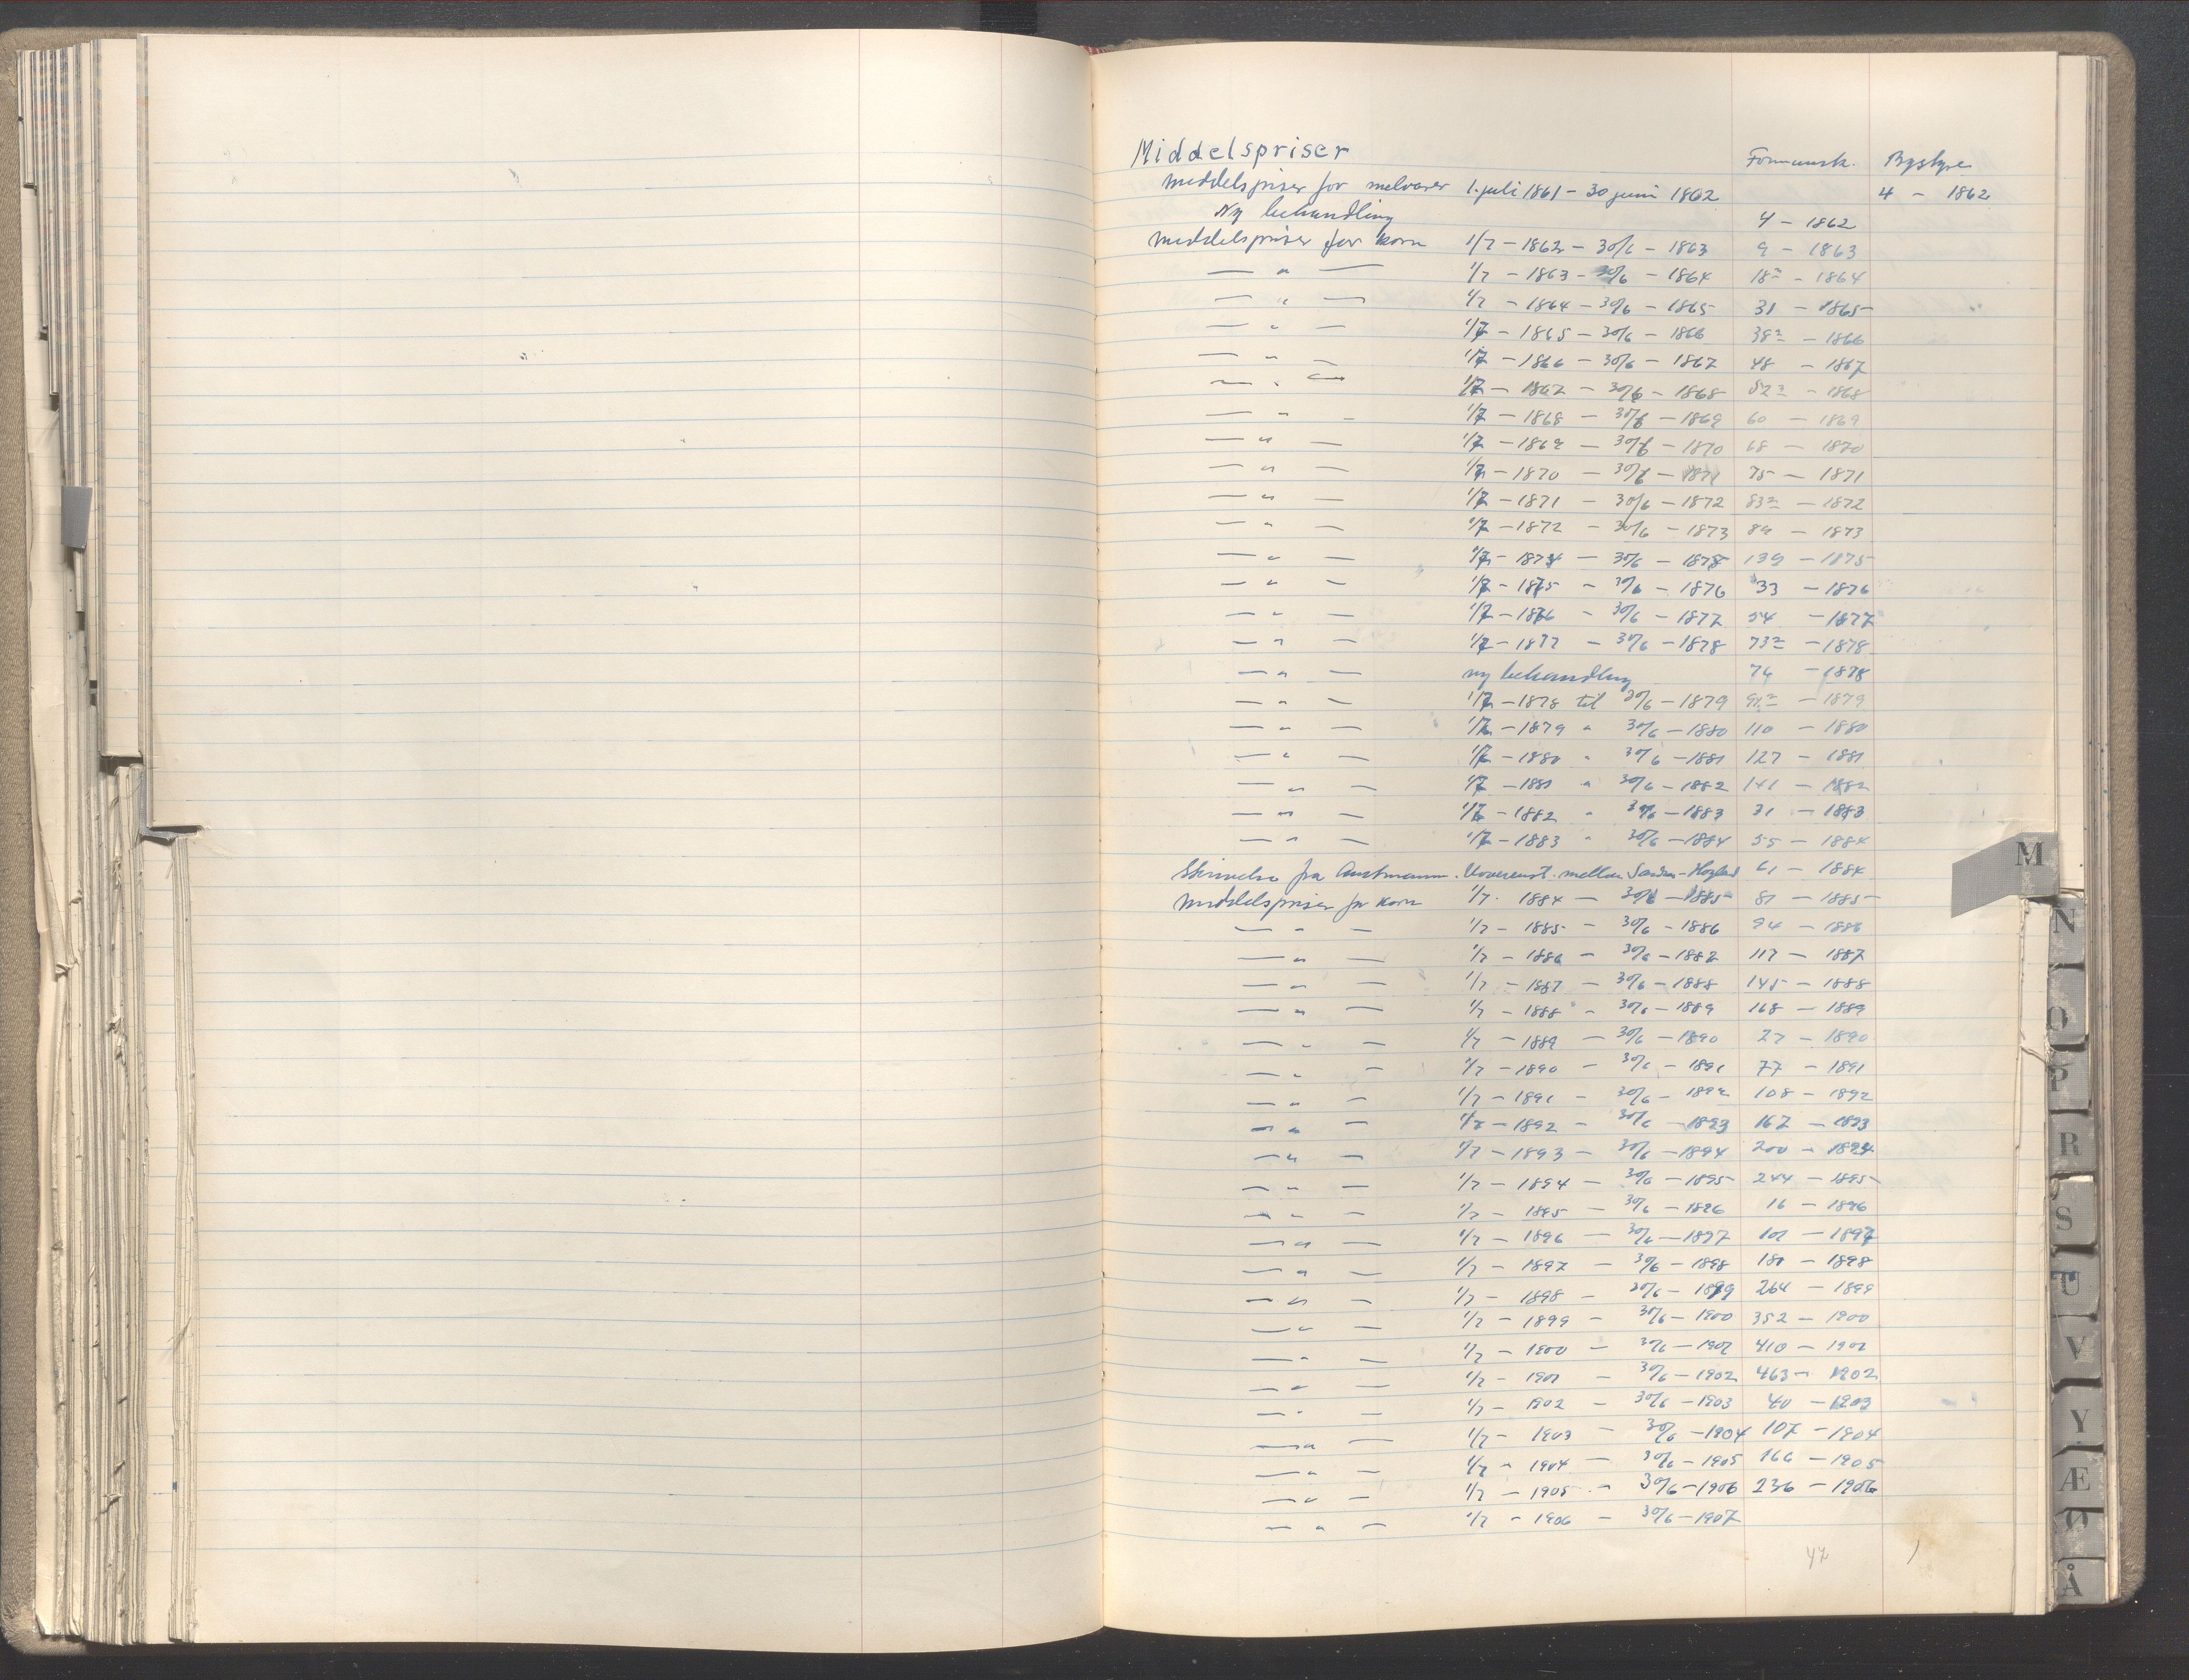 Middelspriser Formannsk. Bystyre
middelspriser for melvarer 1. juli 1861 - 30 juni 1862 4 - 1862
Ny behandling 4 - 1862
middelspriser for korn 1/7 - 1862 - 30/6 - 1863 9 - 1863
— " — 1/7 - 1863 - 30/6 - 1864 18² - 1864
— " — 1/7 - 1864 - 30/6 - 1865 31 - 1865
— " — 1/7 - 1865 - 30/6 - 1866 38² - 1866
— " — 1/7 - 1866 - 30/6 - 1867 48 - 1867
— " — 1/7 - 1867 - 30/6 - 1868 52² - 1868
— " — 1/7 - 1868 - 30/6 - 1869 60 - 1869
— " — 1/7 - 1869 - 30/6 - 1870 68 - 1870
— " — 1/7 - 1870 - 30/6 - 1871 75 - 1871
— " — 1/7 - 1871 - 30/6 - 1872 83² - 1872
— " — 1/7 - 1872 - 30/6 - 1873 89 - 1873
— " — 1/7 - 1874 - 30/6 - 1875 139 - 1875
— " — 1/7 - 1875 - 30/6 - 1876 33 - 1876
— " — 1/7 - 1876 - 30/6 - 1877 54 - 1877
— " — 1/7 - 1877 - 30/6 - 1878 73² - 1878
— " — ny behandling 74 - 1878
— " — 1/7 - 1878 til 30/6 - 1879 91² - 1879
— " — 1/7 - 1879 " 30/6 - 1880 110 - 1880
— " — 1/7 - 1880 " 30/6 - 1881 127 - 1881
— " — 1/7 - 1881 " 30/6 - 1882 141 - 1882
— " — 1/7 - 1882 " 30/6 - 1883 31 - 1883
— " — 1/7 - 1883 " 30/6 - 1884 55 - 1884
Skrivelse fra Amtmann. Uoverenst. mellem 61 - 1884
middelspriser for korn 1/7 - 1884 - 30/6 - 1885 81 - 1885
— " — 1/7 - 1885 - 30/6 - 1886 94 - 1886
— " — 1/7 - 1886 - 30/6 - 1887 117 - 1887
— " — 1/7 - 1887 - 30/6 - 1888 145 - 1888
— " — 1/7 - 1888 - 30/6 - 1889 168 - 1889
— " — 1/7 - 1889 - 30/6 - 1890 27 - 1890
— " — 1/7 - 1890 - 30/6 - 1891 77 - 1891
— " — 1/7 - 1891 - 30/6 - 1892 108 - 1892
— " — 1/7 - 1892 - 30/6 - 1893 167 - 1893
— " — 1/7 - 1893 - 30/6 - 1894 200 - 1894
— " — 1/7 - 1894 - 30/6 - 1895 244 - 1895
— " — 1/7 - 1895 - 30/6 - 1896 16 - 1896
— " — 1/7 - 1896 - 30/6 - 1897 101 - 1897
— " — 1/7 - 1897 - 30/6 - 1898 180 - 1898
— " — 1/7 - 1898 - 30/6 - 1899 264 - 1899
— " — 1/7 - 1899 - 30/6 - 1900 352 - 1900
— " — 1/7 - 1900 - 30/6 - 1901 410 - 1901
— " — 1/7 - 1901 - 30/6 - 1902 463 - 1902
— " — 1/7 - 1902 - 30/6 - 1903 40 - 1903
— " — 1/7 - 1903 - 30/6 - 1904 107 - 1904
— " — 1/7 - 1904 - 30/6 - 1905 166 - 1905
— " — 1/7 - 1905 - 30/6 - 1906 236 - 1906
— " — 1/7 - 1906 - 30/6 - 1907
47
M
N
O
P
R
S
U
V
Y
Æ
Ø
Å